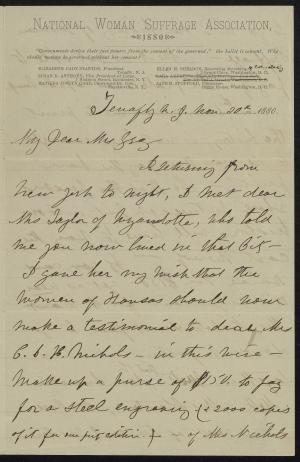 NATIONAL WOMAN SUFFRAGE ASSOCIATION,
1880
"Governments derive their just powers from the consent of the governed;" the ballot is consent. Why
should woman be governed without her consent?
ELIZABETH CADY STANTON, President,
Tenafly, N. J.
SUSAN B. ANTHONY, Vice President at Large,
Rochester, N. Y.
MATILDA JOSLYN GAGE,
Fayetteville, N. Y.
ELLEN H. SHELDON, Recording Secretary,
Washington, D. C.
JANE H. SPOFFORD,
Riggs House, Washington, D. C.
Tenafly N. J. Nov. 20th 1880.
My Dear Mrs
Returning from
New York to night, I met dear
Mrs Taylor of Wyandotte, who told
me you now lived in that City—
I gave her my wish that the
women of Kansas should now
make a testimonial to dear Mrs
C. I. H. Nichols — in this wise —
Make up a purse of to pay
for a steel engraving (& 2000 copies
of it for one edition) — of Mrs Nichols